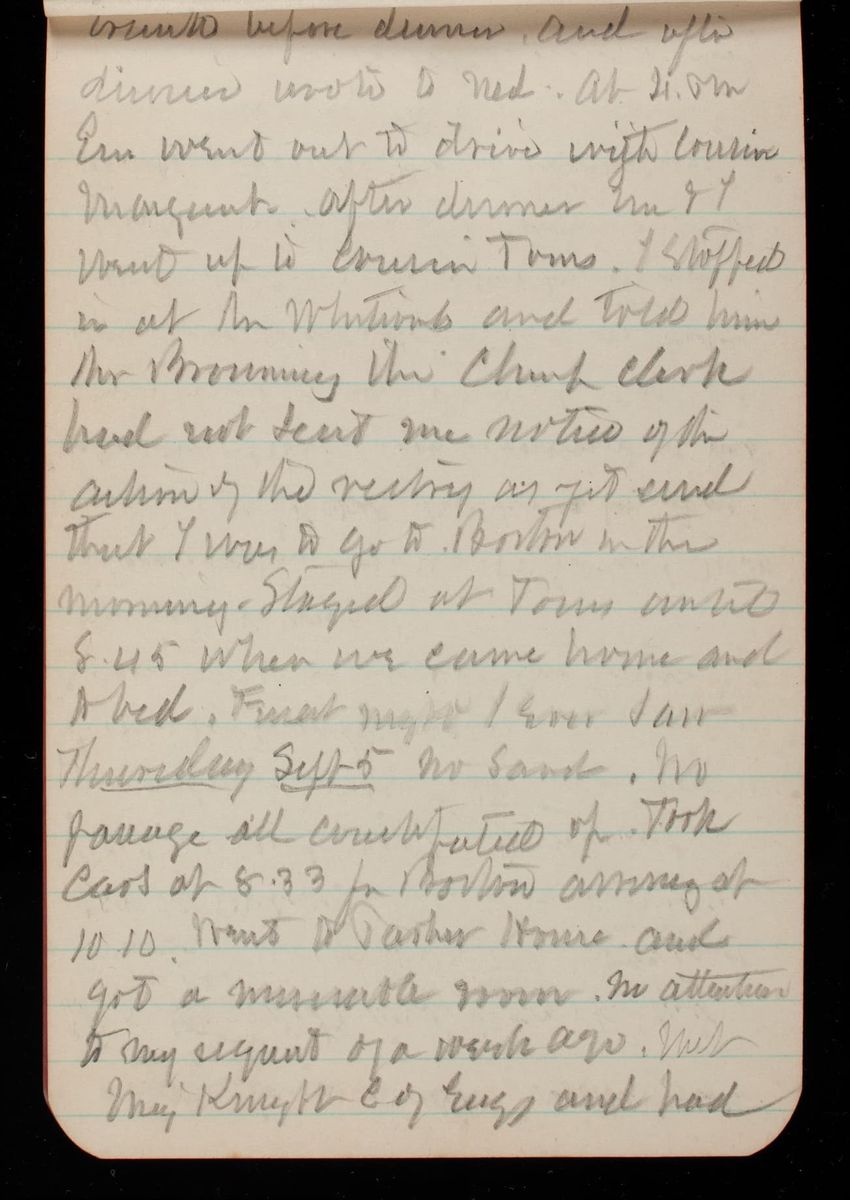 before dinner. and after
dinner wrote to Ned. At 4. Pm
Em went out to drive with Cousin
Marguerite. After dinner Em & I
went up to Cousin Toms. I Stopped
in at Mr and told him
Mr Browning the Chief clerk
had not Sent me notice of the
action of the vestry as yet and
that I was to go to Boston in the
morning. Stayed at Toms until
8.45 when we came home and
to bed. night I Ever Saw
Thursday Sept 5 No Sand. No
passage all up. Took
Cars at 8.33 for Boston arriving at
10 10. Went to Parker House and
got a miserable room. No attention
to my request of a week ago. Met
Maj Knight C of Engs and had